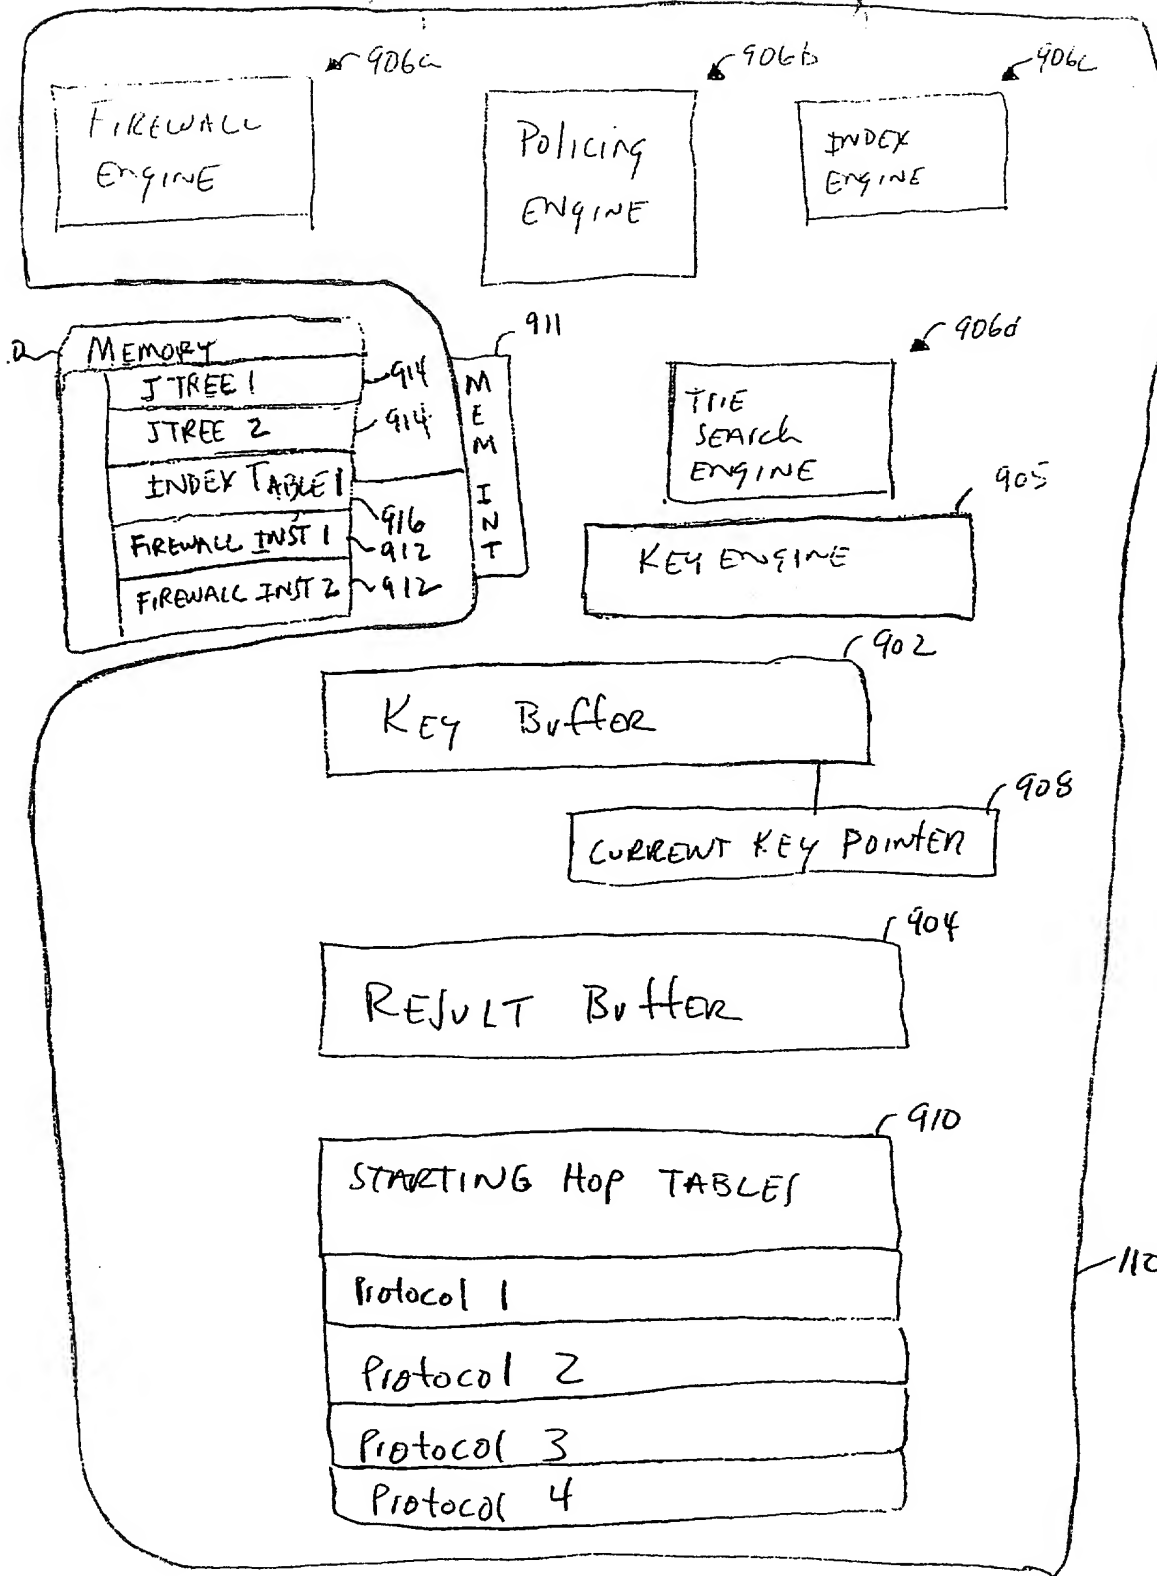 906a
906b
906c
FIREWALL
ENGINE
Policing
ENGINE
INDEX
ENGINE
911
906d
MEMORY
JTREE 1
914
JTREE 2
914
INDEX TABLE 1
916
FIREWALL INST 1
912
FIREWALL INST 2
912
MEM INT
TRIE
SEARCH
ENGINE
905
KEY ENGINE
902
KEY Buffer
908
CURRENT KEY POINTER
904
RESULT Buffer
910
STARTING HOP TABLES
Protocol 1
Protocol 2
Protocol 3
Protocol 4